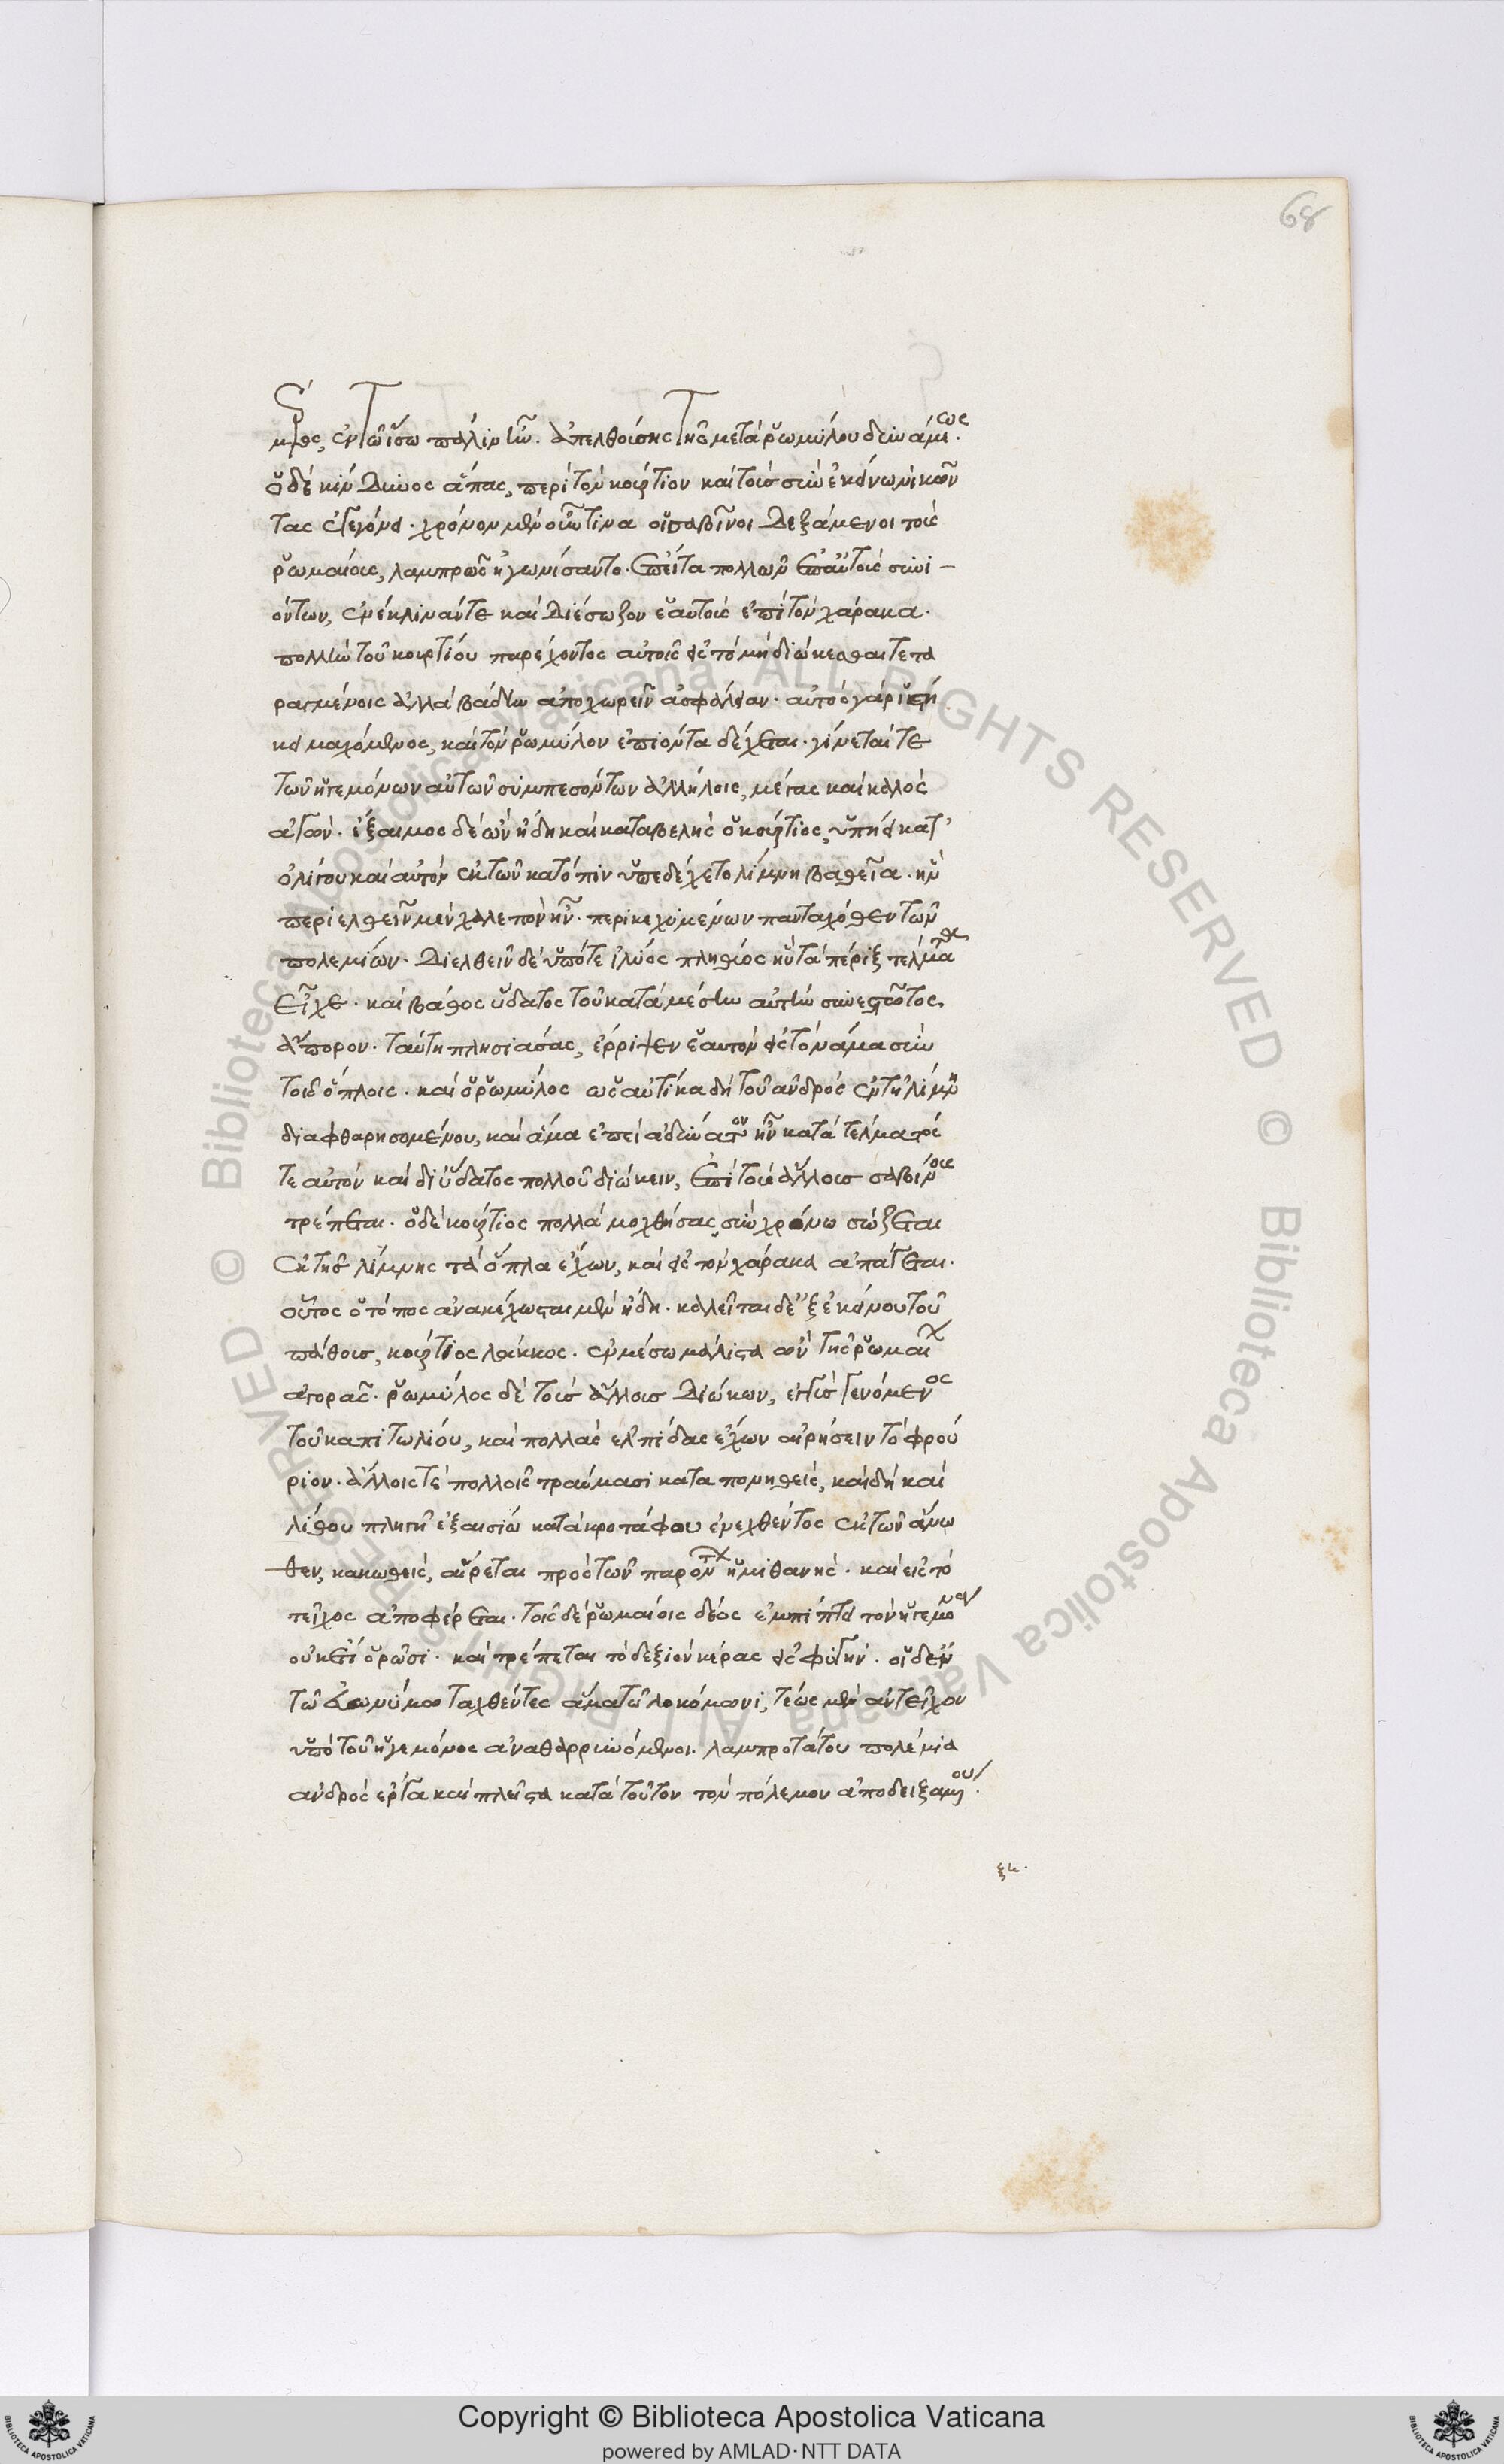 68
μέρος, ἐν τῶ ἴσω πάλιν ἦν. ἀπελθούσης τῆς μετὰ ῥωμύλου δυνάμεως.
ὁ δὲ κίνδυνος ἅπας, περὶ τὸν κούρτιον καὶ τοὺς σὺν ἐκείνω νικῶν
τας ἐγεγόνει. χρόνον μὲν οὖν τινα οἱ σαβῖνοι δεξάμενοι τοὺς
ῥωμαίους, λαμπρῶς ἠγωνίσαντο. ἔπειτα πολλῶν ἐπ' αὐτοὺς συνι-
όντων, ἐνέκλινάν τε καὶ διέσωζον ἑαυτοὺς ἐπὶ τὸν χάρακα.
πολλὴν τοῦ κουρτίου παρέχοντος αὐτοῖς εἰς τὸ μὴ διώκεσθαι τετα
ραγμένοις ἀλλὰ βάδην ἀποχωρεῖν ἀσφάλειαν. αὐτὸς γὰρ εἱστή
κει μαχόμενος, καὶ τὸν ῥωμύλον ἐπιόντα δέχεται. γίνεταί τε
τῶν ἡγεμόνων αὐτῶν συμπεσόντων ἀλλήλοις, μέγας καὶ καλὸς
ἀγών. ἔξαιμος δὲ ὢν ἤδη καὶ καταβελὴς ὁ κούρτιος, ὑπήει κατ'
ὀλίγον καὶ αὐτὸν ἐκ τῶν κατόπιν ὑπεδέχετο λίμνη βαθεῖα. ἣν
περιελθεῖν μὲν χαλεπὸν ἦν. περικεχυμένων πανταχόθεν τῶν
πολεμίων. διελθεῖν δὲ ὑπό τε ἰλύος πλῆθος ἣν τὰ πέριξ τέλματα
εἶχε. καὶ βάθος ὕδατος τοῦ κατὰ μέσην αὐτὴν συνεστῶτος
ἄπορον. ταύτη πλησιάσας, ἔρριψεν ἑαυτὸν εἰς τὸ νᾶμα σὺν
τοῖς ὅπλοις. καὶ ὁ ῥωμύλος ὡς αὐτίκα δὴ τοῦ ἀνδρὸς ἐν τῇ λίμνη
διαφθαρησομένου, καὶ ἅμα ἐπεὶ ἀδύνατον ἦν κατὰ τέλματός
τε αὐτὸν καὶ δι' ὕδατος πολλοῦ διώκειν, ἐπὶ τοὺς ἄλλους σαβίνους
τρέπεται. ὁ δὲ κούρτιος πολλὰ μοχθήσας, σὺν χρόνω σώζεται
ἐκ τῆς λίμνης τὰ ὅπλα ἔχων, καὶ εἰς τὸν χάρακα ἀπάγεται.
οὗτος ὁ τόπος ἀνακέχωσται μὲν ἤδη. καλεῖται δὲ ἐξ ἐκείνου τοῦ
πάθους, κούρτιος λάκκος. ἐν μέσω μάλιστα ὢν τῆς ῥωμαίων
ἀγορᾶς. ῥωμύλος δὲ τοὺς ἄλλους διώκων, ἐγγὺς γενόμενος
τοῦ καπιτωλίου, καὶ πολλὰς ἐλπίδας ἔχων αἱρήσειν τὸ φρού
ριον. ἄλλοις τε πολλοῖς τραύμασι καταπονηθεὶς, καὶ δὴ καὶ
λίθου πληγῆ ἐξαισίω κατὰ κροτάφου ἐνεχθέντος ἐκ τῶν ἄνω
θεν, κακωθεὶς, αἴρεται πρὸς τῶν παρόντων ἡμιθανής. καὶ εἰς τὸ
τεῖχος ἀποφέρεται. τοῖς δὲ ῥωμαίοις δέος ἐμπίπτει τὸν ἡγεμόνα
οὐκέτι ὁρῶσι. καὶ τρέπεται τὸ δεξιὸν κέρας εἰς φυγήν. οἱ δ' ἐν
τῶ εὐωνύμω ταχθέντες ἅμα τῶ λοκόμωνι, τέως μὲν ἀντεῖχον
ὑπὸ τοῦ ἡγεμόνος ἀναθαρρυνόμενοι. λαμπροτάτου πολέμια
ἀνδρὸς ἔργα καὶ πλεῖστα κατὰ τοῦτον τὸν πόλεμον ἀποδειξαμένου.